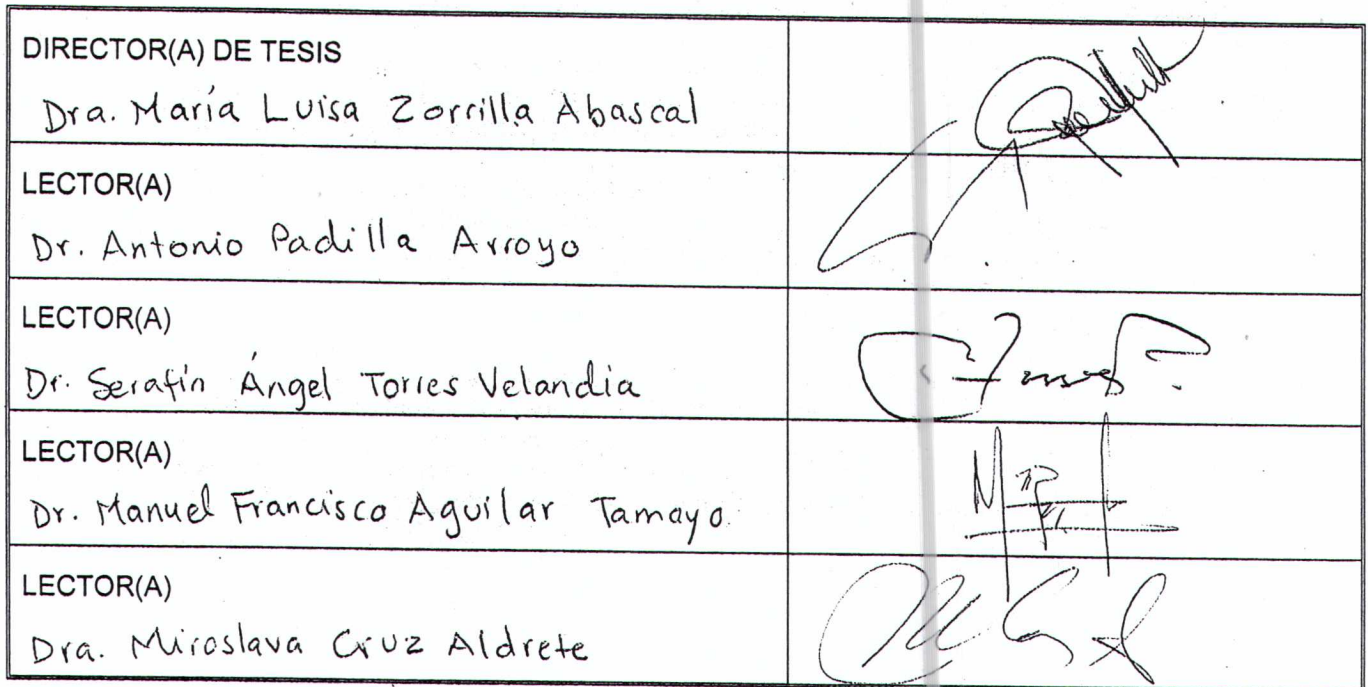 DIRECTOR(A) DE TESIS
Dra. María Luisa Zorrilla Abascal
LECTOR(A)
Dr. Antonio Padilla Arroyo
LECTOR(A)
Dr. Serafín Ángel Torres Velandia
LECTOR(A)
Dr. Manuel Francisco Aguilar Tamayo
LECTOR(A)
Dra. Miroslava Cruz Aldrete